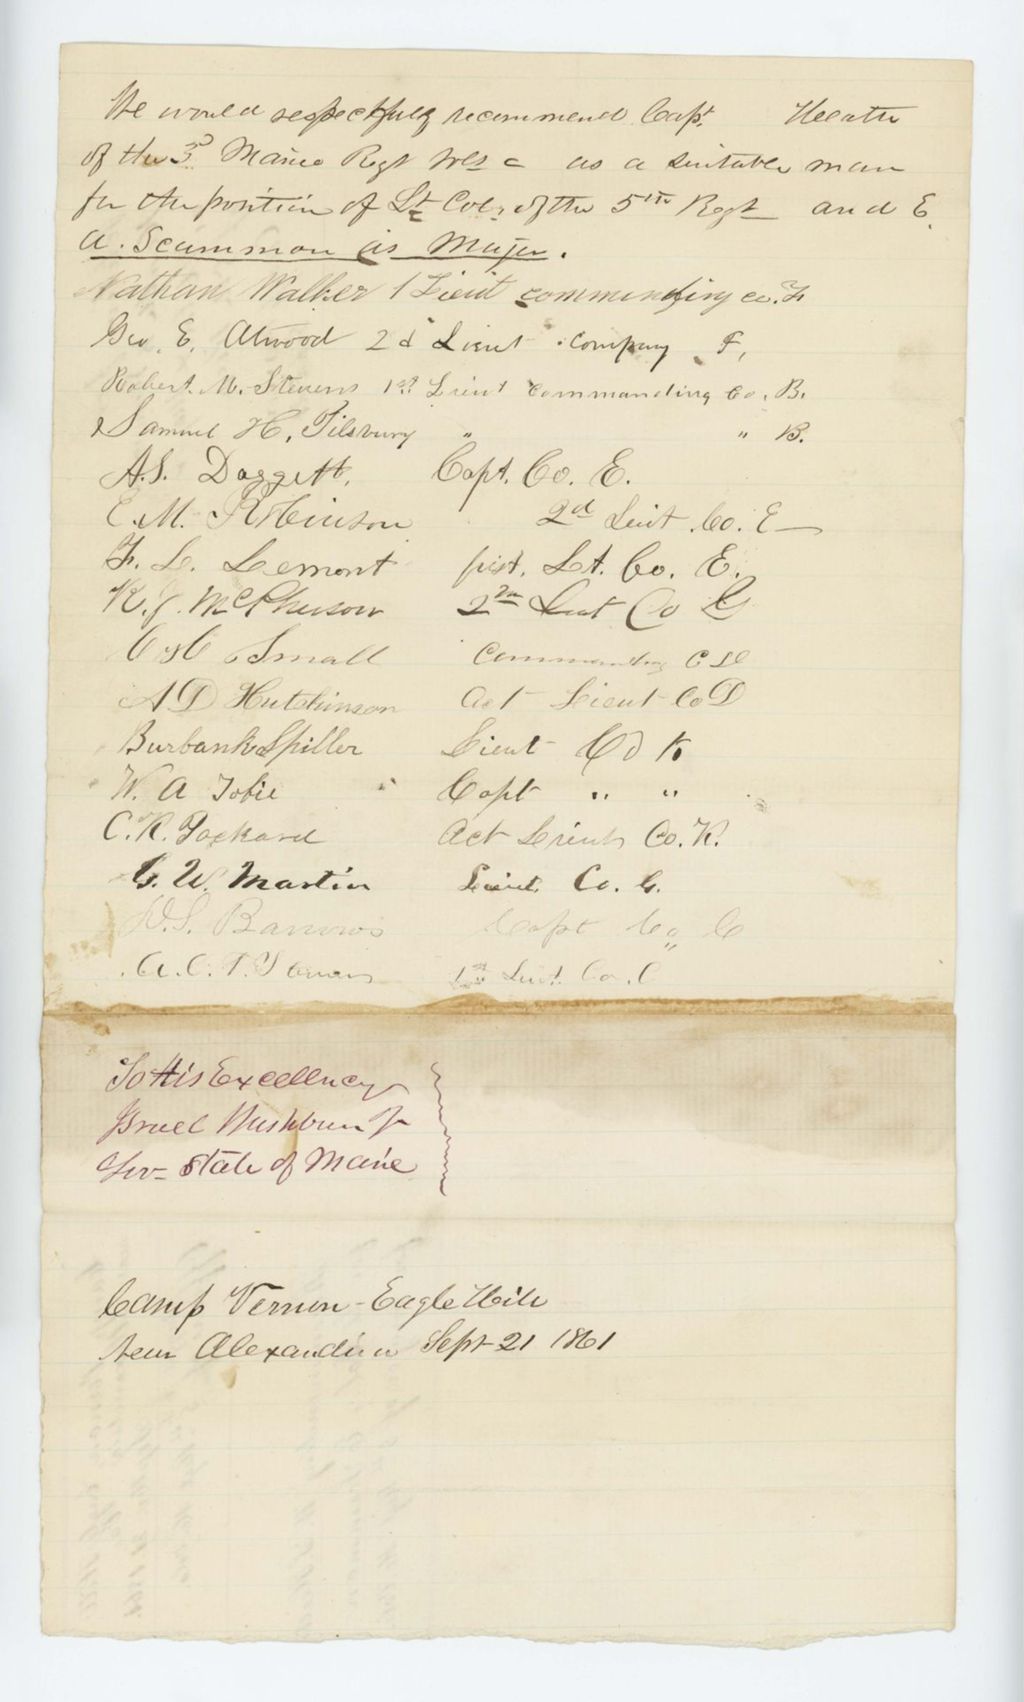 We would respectfully recommend Capt. Heath
of the 3d Maine Regt Vols as a suitable man
for the position of Lt Col, of the 5th Regt and E.
A. Scammon as Major.
Nathan Walker 1 Lieut commanding co. F
Geo. E. Atwood 2d Lieut Company F,
Robert M. Stevens 1st Lieut Commanding Co. B.
Samuel H. Pilsbury " " B.
A.S. Daggett, Capt. Co. E.
C. M. Robinson 2d Lieut Co. E
F. L. Lemont first. Lt. Co. E.
R. J. McPherson 2nd Lieut Co G
Small Commanding C D
A D Hutchinson Act Lieut Co D
Burbank Spiller Lieut CO K
W. A Tobie Capt " "
C. K. Packard Act Lieut Co. K.
G. W. Martin Lieut. Co. G.
Barrows Capt Co C
1st Lieut. Co. C
To His Excellency
Israel Washburn Jr
Gov- State of Maine
Camp Vernon - Eagle Hill
near Alexandria Sept 21 1861